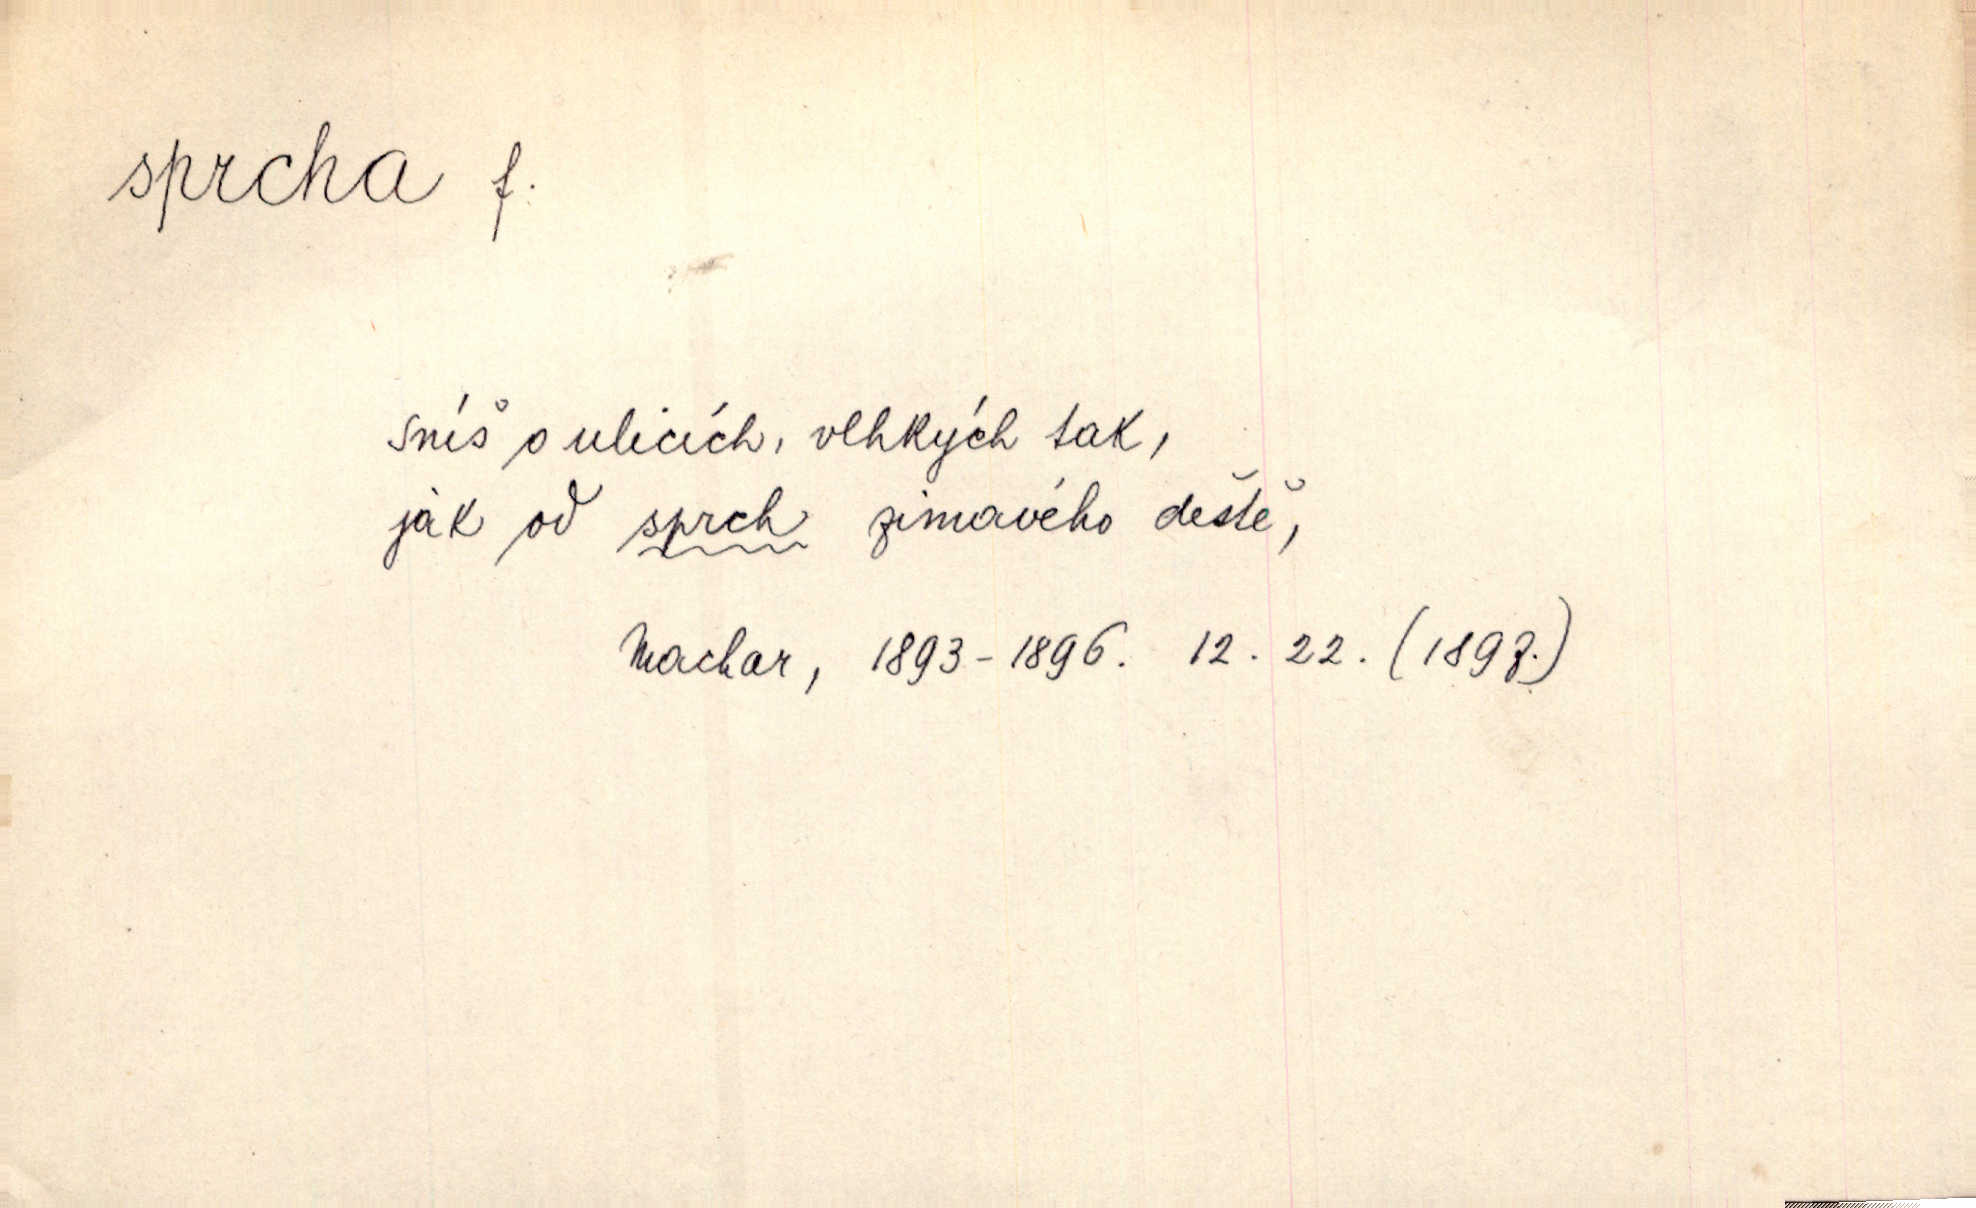 sprcha f.
sníš o ulicích, vlhkých tak,
jak od sprch zimavého deště,
Machar, 1893-1896. 12. 22. (1897.)